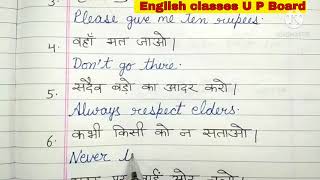 English classes U P Board
3.
Please give me ten rupees.
4. वहाँ मत जाओ।
Don't go there.
5. सदैव बड़ो का आदर करो।
Always respect elders.
6. कभी किसी को न सताओ।
Never